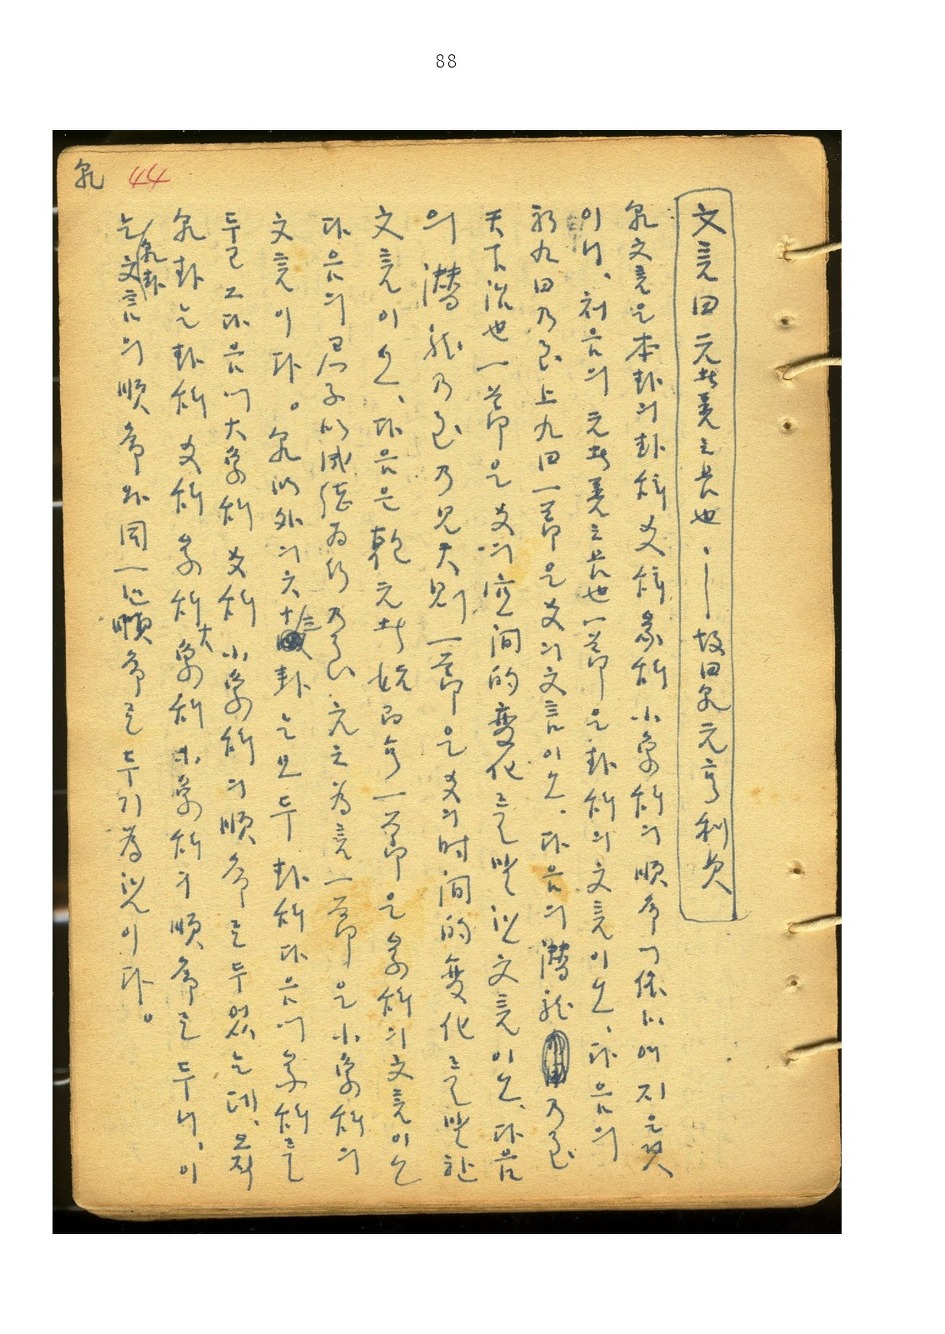 88
乾 44
文言曰 元者善之長也 · ㅣ 故曰乾元亨利貞
乾文言은 本卦의 卦辭 爻辭 彖辭 小象辭의 順序에 依하여 지은것
이니、처음의 元者善之長也一節은 卦辭의 文言이오、다음의
初九曰乃至上九曰一節은 爻의 文言이오、다음의 潛龍 乃至
天下治也一節은 爻의 空間的變化를 말한 文言이오、다음
의 潛龍乃至乃見天則一節은 爻의 時間的變化를 말한
文言이오、다음은 乾元者 始而亨一節은 彖辭의 文言이오
다음의 君子以成德為行乃至 亢之為言一節은 小象辭의
文言이다。乾以外의 六十三卦는 모두 卦辭다음에 彖辭를
두고 그다음에 大象辭 爻辭 小象辭의 順序로 두었는데、오직
乾卦는 卦辭 爻辭 彖辭 大象辭 小象辭의 順序로 두니、이
는 乾卦文言의 順序와 同一한 順序로 두기 為함이다。